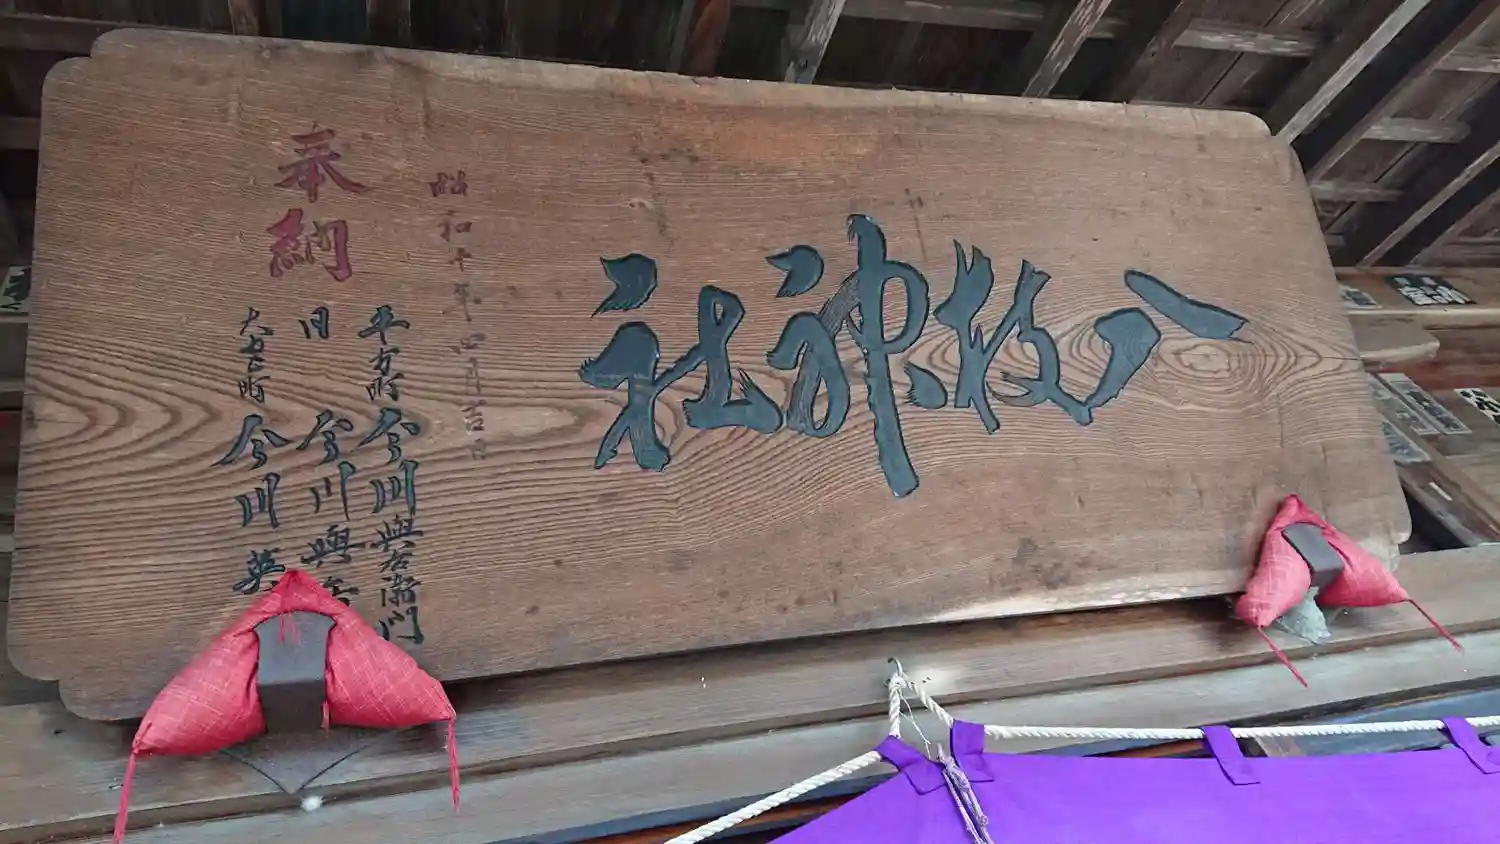 八枝神社
昭和十年四月吉日
奉納
平方町 今川與右衛門
同 今川與
大七町 今川 英